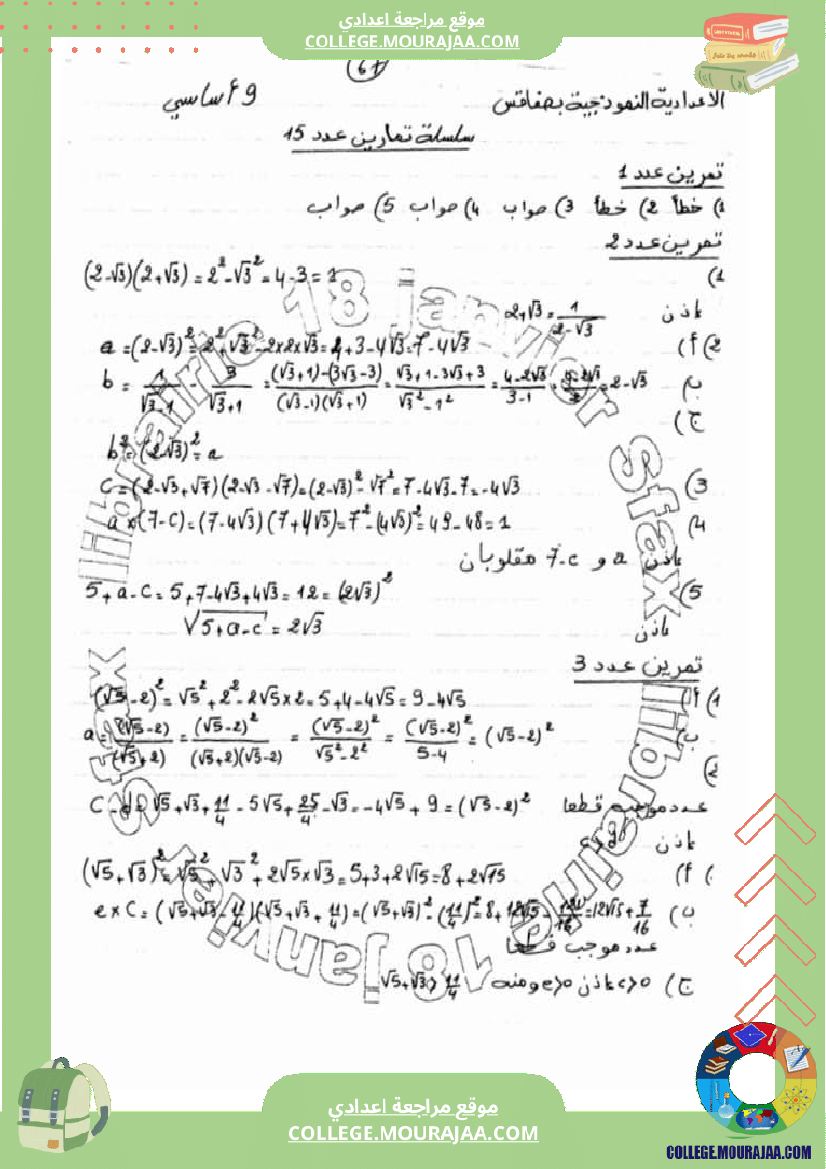 موقع مراجعة اعدادي
COLLEGE.MOURAJAA.COM
(67)
الاعدادية النموذجية بصفاقس
9 أساسي
سلسلة تمارين عدد 15
تمرين عدد 1
1) خطأ 2) خطأ 3) صواب 4) صواب 5) صواب
تمرين عدد 2
1) (2-√3)(2+√3) = 2²-√3² = 4-3 = 1
إذن 2+√3 = 1/(2-√3)
2) أ) a = (2-√3)² = 2²+√3²-2×2×√3 = 4+3-4√3 = 7-4√3
ب) b = 1/(√3-1) - 3/(√3+1) = ((√3+1)-(3√3-3))/((√3-1)(√3+1)) = (√3+1-3√3+3)/(√3²-1²) = (4-2√3)/(3-1) = = 2-√3
ج)
b² = (2-√3)² = a
3) C = (2-√3+√7)(2-√3-√7) = (2-√3)²-√7² = 7-4√3-7 = -4√3
4) a×(7-C) = (7-4√3)(7+4√3) = 7²-(4√3)² = 49-48 = 1
إذن a و 7-c مقلوبان
5) 5+a-C = 5+7-4√3+4√3 = 12 = (2√3)²
إذن √(5+a-c) = 2√3
تمرين عدد 3
1) أ) (√5-2)² = √5²+2²-2√5×2 = 5+4-4√5 = 9-4√5
ب) a = (√5-2)/(√5+2) = (√5-2)²/((√5+2)(√5-2)) = (√5-2)²/(√5²-2²) = (√5-2)²/(5-4) = (√5-2)²
2)
C-d = √5+√3+11/4-5√5+25/4-√3 = -4√5+9 = (√5-2)² عدد موجب قطعا
إذن
أ) (√5+√3)² = √5²+√3²+2√5×√3 = 5+3+2√15 = 8+2√15
ب) e×C = (√5+√3-11/4)(√5+√3+11/4) = (√5+√3)²-(11/4)² = 8+
عدد موجب قطعا
ج) c>0 إذن e>0 ومنه √5+√3 > 11/4
librairie 18 janvier Sfax
librairie 18 janvier Sfax
موقع مراجعة اعدادي
COLLEGE.MOURAJAA.COM
COLLEGE.MOURAJAA.COM